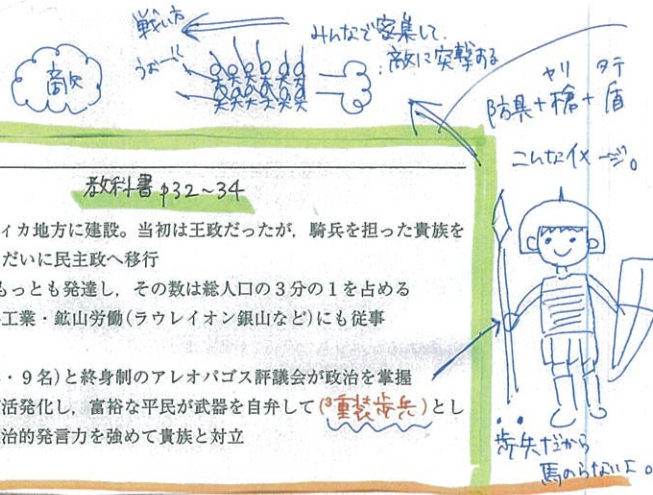 戦い方
みんなで密集して、
敵に突撃する
うぉー!!
敵
ヤリ タテ
防具+槍+盾
こんなイメージ。
教科書p32~34
ィカ地方に建設。当初は王政だったが,騎兵を担った貴族を
だいに民主政へ移行
もっとも発達し,その数は総人口の3分の1を占める
工業・鉱山労働(ラウレイオン銀山など)にも従事
・9名)と終身制のアレオパゴス評議会が政治を掌握
活発化し,富裕な平民が武器を自弁して(³重装歩兵)とし
治的発言力を強めて貴族と対立
歩兵だから
馬のらないよ。